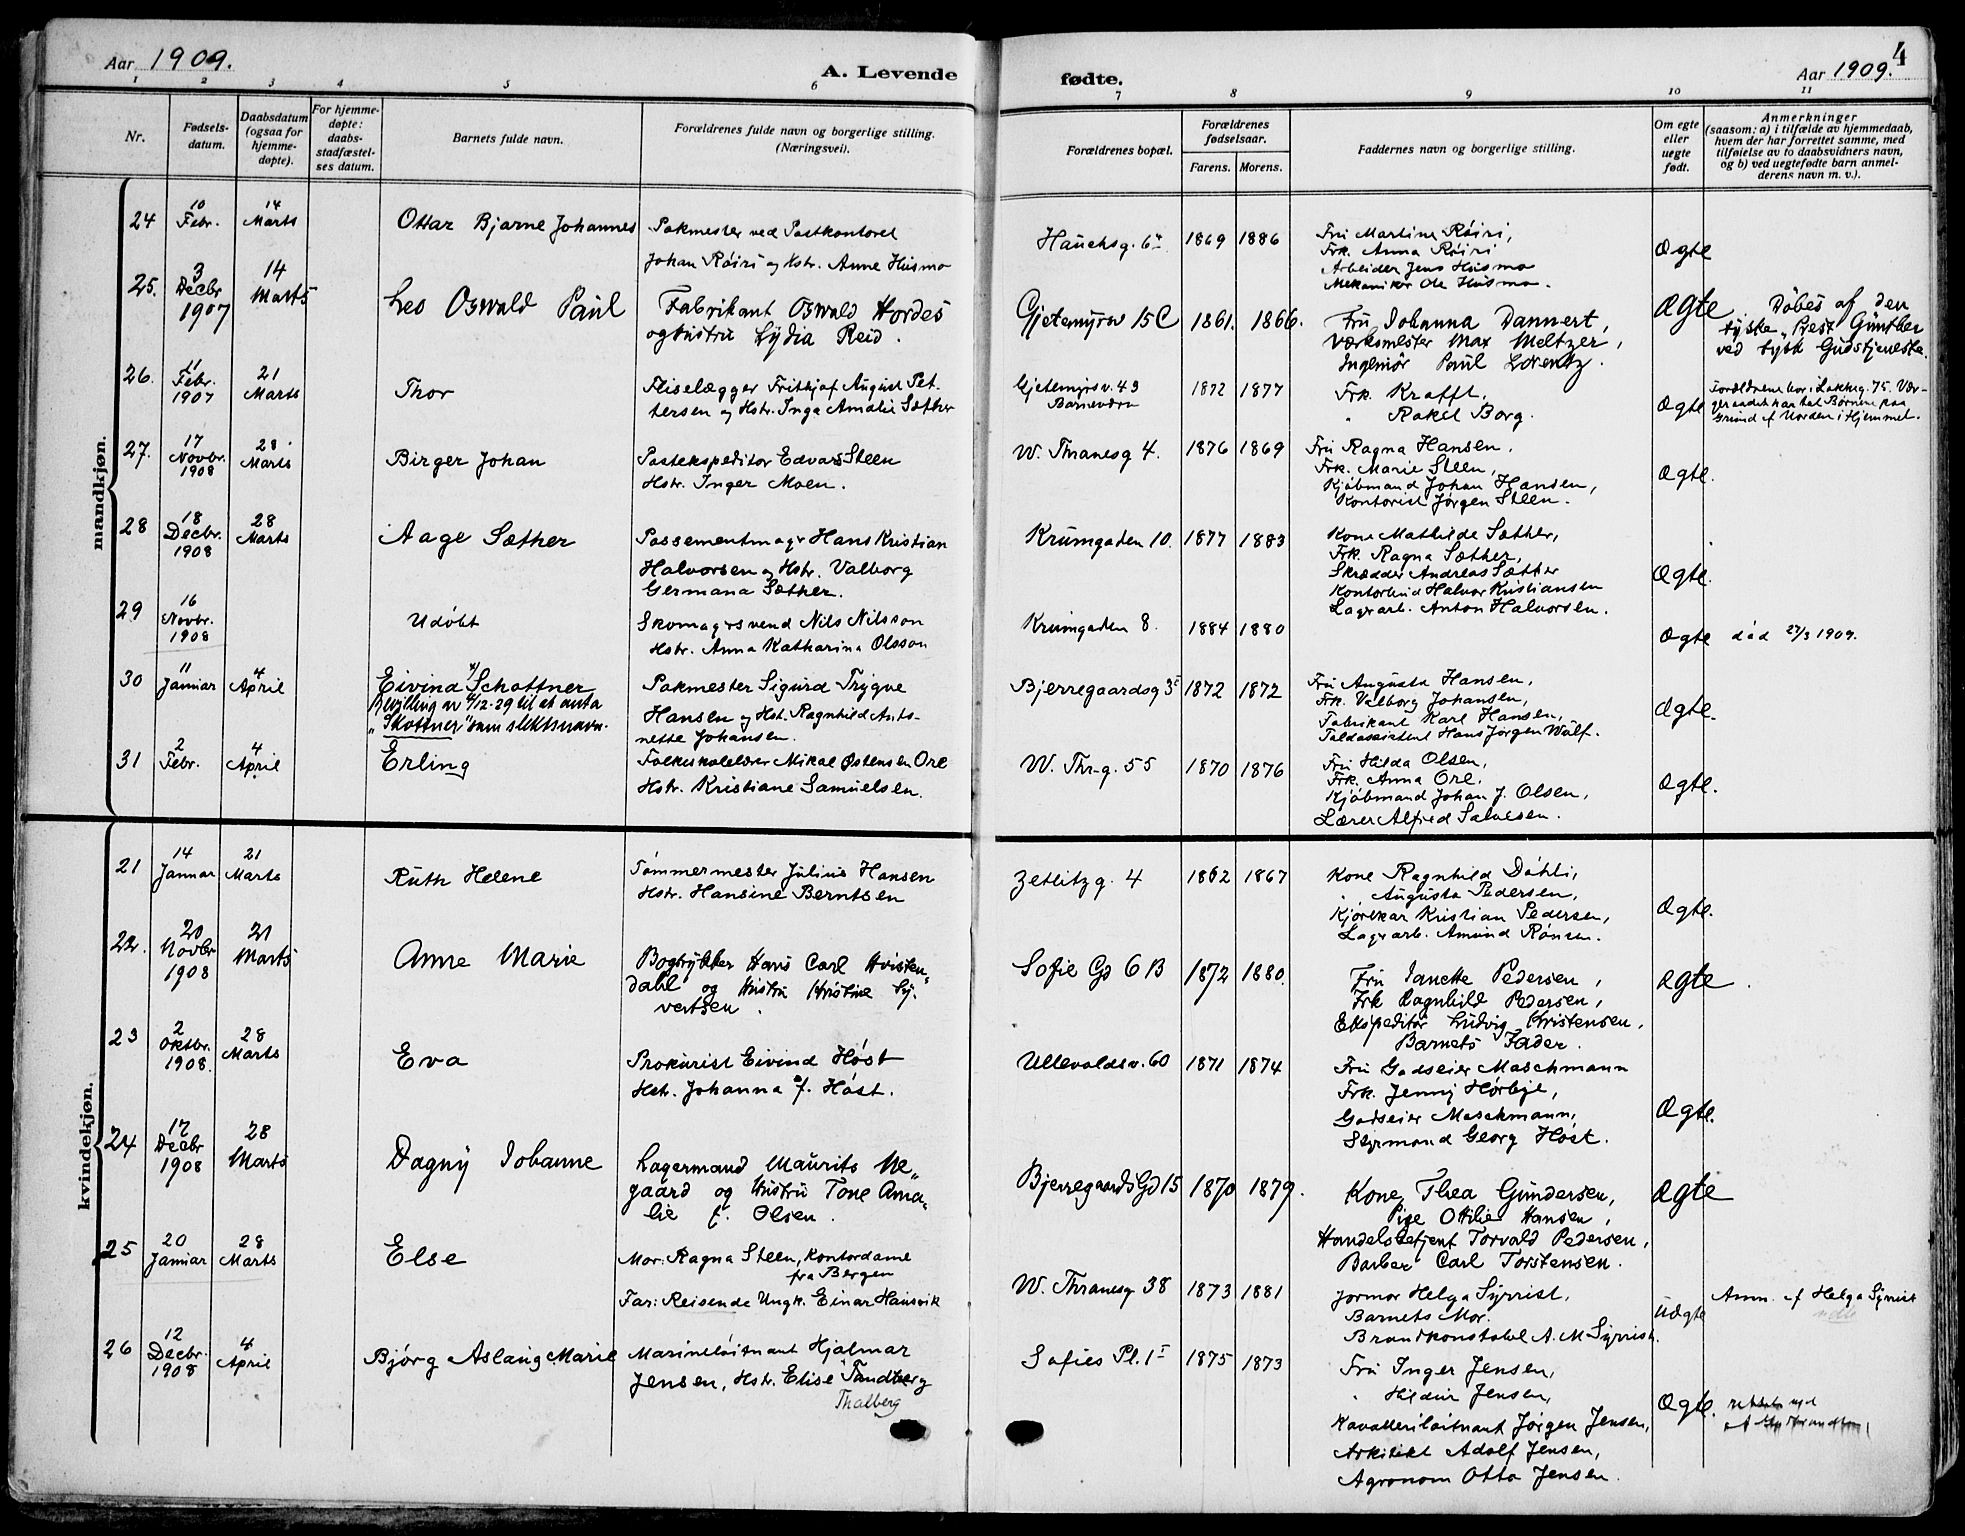 Aar 1909.
A. Levende
fødte.
Aar 1909.
4
1 2 3 4 5 6 7 8 9 10 11
Nr.
Fødsels-
datum.
Daabsdatum
(ogsaa for
hjemme-
døpte).
For hjemme-
døpte:
daabs-
stadfæstel-
ses datum.
Barnets fulde navn.
Forældrenes fulde navn og borgerlige stilling.
(Næringsvei).
Forældrenes bopæl.
Forældrenes
fødselsaar.
Farens. Morens.
Faddernes navn og borgerlige stilling.
Om egte
eller
uegte
født.
Anmerkninger
(saasom: a) i tilfælde av hjemmedaab,
hvem der har forrettet samme, med
tilføielse av to daabsvidners navn,
og b) ved uegtefødte barn anmel-
derens navn m. v.).
mandkjøn.
24
10
Febr.
14
Marts
Ottar Bjarne Johannes
Pakmester ved Postkontoret
Johan Røiri og Hstr. Anne Husmo
Hauchsg. 6
1869 1886
Fru Martine Røiri,
Frk. Anna Røiri
Arbeider Jens Husmo
Mekaniker Ole Husmo.
Ægte
25.
3
Decbr
1907
14
Marts
Leo Oswald Paul
Fabrikant Oswald Hordes
og Hustru Lydia Reid.
Gjetemyrsv 15C
1861. 1866.
Fru Johanna Dannert,
Værksmester Max Meltzer,
Ingeniør Paul Lorentz.
Ægte
Døbes af den
tyske Prest Günther
ved tysk Gudstjeneste.
26.
11
Febr.
1907
21
Marts
Thor
Fliselægger Frithjof August Pet-
tersen og Hstr. Inga Amalie Sæther
Gjetemyrsv. 43
Barnehjem
1872 1877
Frk. Krafft,
" Rakel Borg.
Ægte
Forældrene bor i Lakkeg. 75. Vær-
geraadet har tat Børnene paa
Grund af Uorden i Hjemmet.
27.
17
Novbr.
1908
28
Marts
Birger Johan
Postekspeditor Edvard Steen
Hstr. Inger Moen.
W. Thranesg 4.
1876 1869
Fru Ragna Hansen,
Frk. Marie Steen,
Kjøbmand Johan Hansen,
Kontorist Jørgen Steen.
Ægte.
28
18
Decbr.
1908
28
Marts
Aage Sæther
Possementmagr Hans Kristian
Halvorsen og Hstr. Valborg
Germana Sæther.
Krumgaden 10.
1877 1883
Kone Mathilde Sæther,
Frk. Ragna Sæther,
Skrædder Andreas Sæther
Kontorbud Halvor Kristiansen
Lagerarb. Anton Halvorsen.
Ægte.
29
16
Novbr.
1908
Udøbt
Skomagersvend Nils Nilsson
Hstr. Anna Katharina Olsson
Krumgaden 8.
1884 1880
Ægte
død 27/3 1909.
30
11
Januar
4
April
Eivind Schattner
Bevilling av 4/12-29 til at anta
"Skottner" som slektsnavn.
Pakmester Sigurd Trygve
Hansen og Hst. Ragnhild Anto-
nette Johansen.
Bjerregaardsg 3
1872 1872
Fru Augusta Hansen,
Frk. Valborg Johansen,
Fabrikant Karl Hansen,
Toldassistent Hans Jørgen Wulf.
Ægte.
31
2
Febr.
4
April
Erling
Folkeskolelærer Mikal Østensen Ore
Hstr. Kristiane Samuelsen.
W. Thr.g. 55
1870 1876
Fru Hilda Olsen,
Frk. Anna Ore.
Kjøbmand Johan J. Olsen,
Lærer Alfred Salvesen.
Ægte.
kvindekjøn.
21
14
Januar
21
Marts
Ruth Helene
Tømmermester Julius Hansen
Hstr. Hansine Berntsen
Zetlitzg. 4
1862 1867
Kone Ragnhild Døhli,
" Augusta Pedersen,
Kjørekar Kristian Pedersen,
Lagerarb. Amund Rønsen.
Ægte.
22.
20
Novbr
1908
21
Marts
Anne Marie
Bogtrykker Hans Carl Hvisten-
dahl og Hustru Kristine Sy-
vertsen.
Sofie Gd 6B
1872 1880.
Fru Janette Pedersen,
Frk Ragnhild Pedersen,
Ekspeditør Ludvig Kristensen,
Barnets Fader.
Ægte
23
2
Oktbr.
1908.
28
Marts
Eva
Prokurist Eivind Høst
Hstr. Johanna f. Høst.
Ullevoldsv. 60
1871 1874
Fru Godseier Maschmann
Frk. Jenny Hørbye,
Godseier Maschmann,
Styrmand Georg Høst.
Ægte.
24
17
Decbr
1908
28
Marts
Dagny Johanne
Lagermand Maurits Ne-
gaard og Hustru Tone Ama-
lie f. Olsen.
Bjerregaards Gd 15
1870 1879.
Kone Thea Gundersen,
Pige Ottilie Hansen,
Handelsbetjent Torvald Pedersen,
Barber Carl Torstensen.
Ægte
25
20
Januar
28
Marts
Else
Mor: Ragna Steen, Kontordame
fra Bergen
Far: Reisende Ungk. Einar Hausvik
W. Thranesg 38
1873 1881
Jormor Helga Syvrist,
Barnets Mor.
Brandkonstabel A. M Syvrist.
Uægte
Anm. af Helga Syvrist
26
12
Decbr.
1908
4
April
Bjørg Aslaug Marie
Marineløitnant Hjalmar
Jensen, Hstr. Elise Tandberg
Thalberg
Sofies Pl. 1
1875 1873
Fru Inger Jensen,
" Hildur Jensen,
Kavalleriløitnant Jørgen Jensen,
Arkitekt Adolf Jensen,
Agronom Otto Jensen.
Ægte.